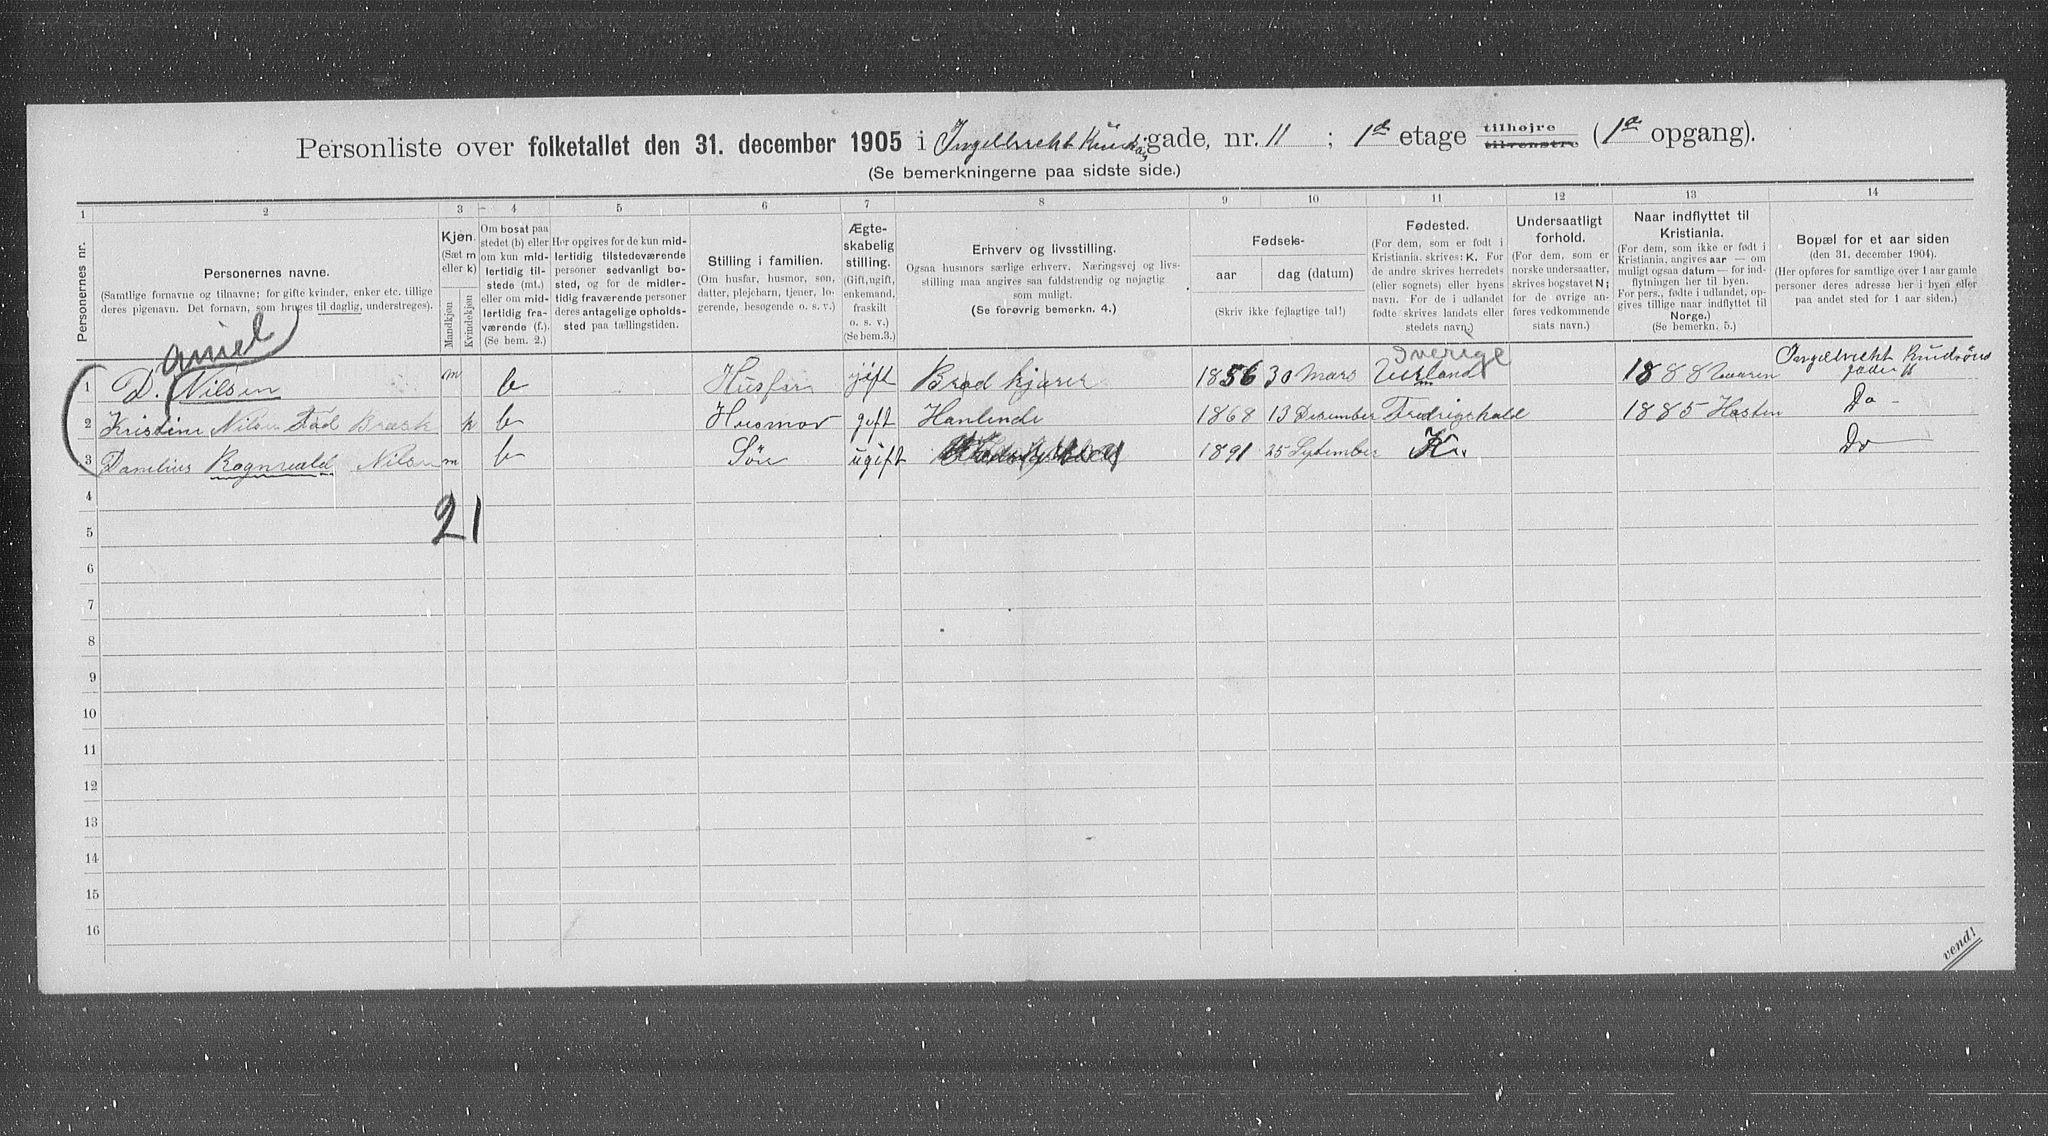 Personliste over folketallet den 31. december 1905 i Ingelbrecht Knudsøns gade, nr. 11 ; 1ste etage tilhøjre tilvenstre (1ste opgang).
(Se bemerkningerne paa sidste side.)
1 2 3 4 5 6 7 8 9 10 11 12 13 14
Personernes nr.
Personernes navne.
(Samtlige fornavne og tilnavne; for gifte kvinder, enker etc. tillige
deres pigenavn. Det fornavn, som bruges til daglig, understreges).
Kjøn.
(Sæt m
eller k)
Mandkjøn
Kvindekjøn
Om bosat paa
stedet (b) eller
om kun mid-
lertidig til-
stede (mt.)
eller om mid-
lertidig fra-
værende (f.).
(Se bem. 2.)
Her opgives for de kun mid-
lertidig tilstedeværende
personer sedvanligt bo-
sted, og for de midler-
tidig fraværende personer
deres antagelige opholds-
sted paa tællingstiden.
Stilling i familien.
(Om husfar, husmor, søn,
datter, plejebarn, tjener, lo-
gerende, besøgende o. s. v.)
Ægte-
skabelig
stilling.
(Gift, ugift,
enkemand,
fraskilt
o. s. v.)
(Se bem.3.)
Erhverv og livsstilling.
Ogsaa husmors særlige erhverv. Næringsvej og livs-
stilling maa angives saa fuldstændig og nøjagtig
som muligt.
(Se forøvrig bemerkn. 4.)
Fødsels-
aar
dag (datum)
(Skriv ikke fejlagtige tal!)
Fødested.
(For dem, som er født i
Kristiania. skrives: K. For
de andre skrives herredets
(eller sognets) eller byens
navn. For de i udlandet
fødte skrives landets eller
stedets navn.)
Undersaatligt
forhold.
(For dem, som er
norske undersaatter,
skrives bogstavet N;
for de øvrige an-
føres vedkommende
stats navn.)
Naar indflyttet til
Kristiania.
(For dem, som ikke er født i
Kristiania, angives aar — om
muligt ogsaa datum — for ind-
flytningen her til byen.
For pers., fødte i udlandet, op-
gives tillige naar indflyttet til
Norge.)
(Se bemerkn. 5.)
Bopæl for et aar siden
(den 31. december 1904).
(Her opføres for samtlige over 1 aar gamle
personer deres adresse her i byen eller
paa andet sted for 1 aar siden.)
aniel
Sverige
1 D. Nilsen m b Husfar gift Brød kjører 1856 30 Mars 1888 Vaaren Ingelbrecht Knudsøns
gade 11
2 Kristine Nilsen Fød Brask k b Husmor gift Hanlende 1868 13 Desember Fredrigshald 1885 Høsten Do -
3 Danelius Rognvald Nilsen m b Sön ugift 1891 25 September K. Do
4
21
5
6
7
8
9
10
11
12
13
14
15
16
vend!